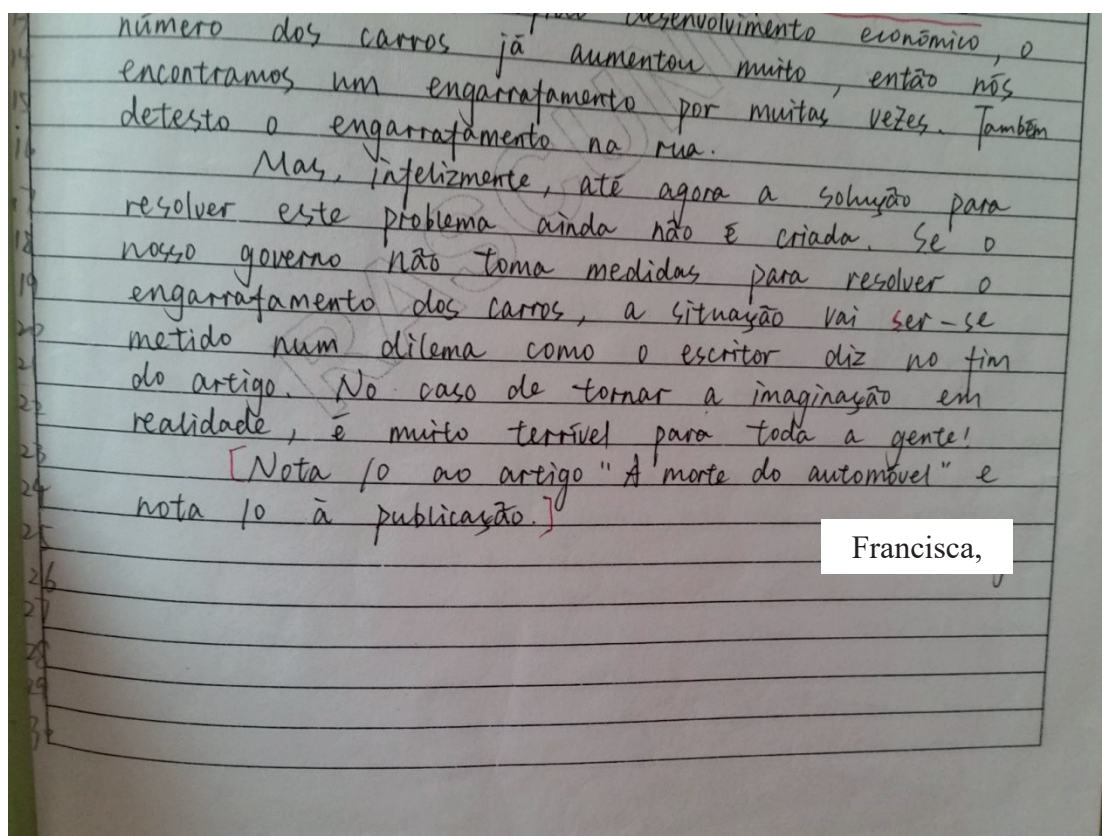 desenvolvimento económico, o
número dos carros já aumentou muito, então nós
encontramos um engarrafamento por muitas vezes. Também
detesto o engarrafamento na rua.
Mas, infelizmente, até agora a solução para
resolver este problema ainda não é criada. Se o
nosso governo não toma medidas para resolver o
engarrafamento dos carros, a situação vai ser-se
metido num dilema como o escritor diz no fim
do artigo. No caso de tornar a imaginação em
realidade, é muito terrível para toda a gente!
[Nota 10 ao artigo "A morte do automóvel" e
nota 10 à publicação.]
Francisca,
14
15
16
17
18
19
20
21
22
23
24
25
26
27
28
29
RASCUN